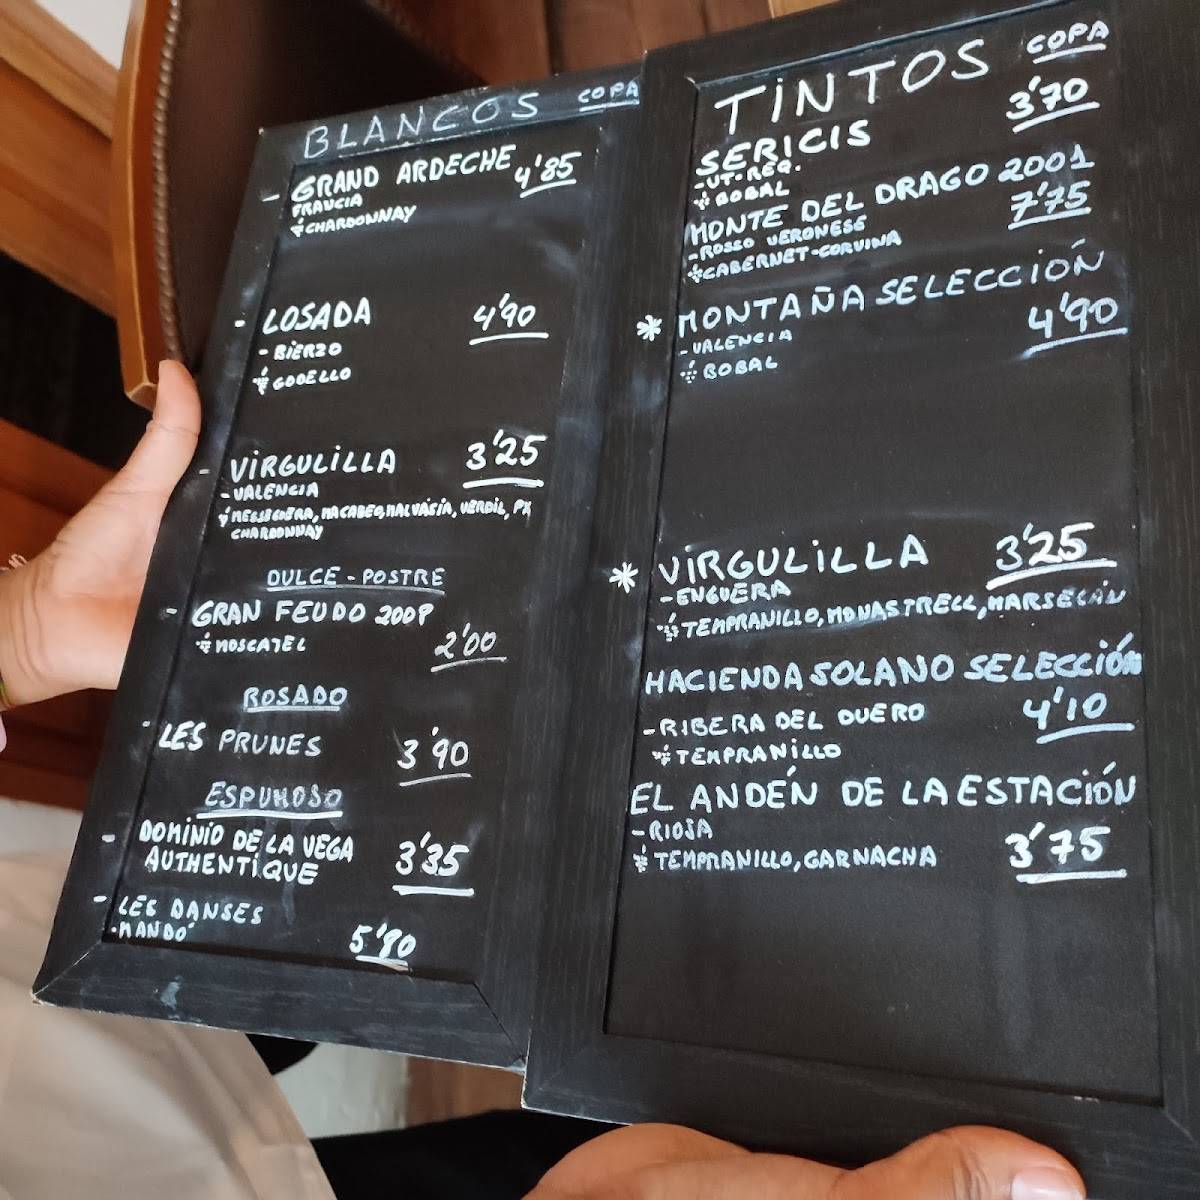 BLANCOS COPA
- GRAND ARDECHE 4'85
FRANCIA
CHARDONNAY
- LOSADA 4'90
- BIERZO
GODELLO
- VIRGULILLA 3'25
- VALENCIA
MESSEGUERA, MACABEO, MALVASÍA, VERDIL, PX
CHARDONNAY
DULCE - POSTRE
- GRAN FEUDO 2008
MOSCATEL 2'00
ROSADO
- LES PRUNES 3'90
ESPUMOSO
- DOMINIO DE LA VEGA
AUTHENTIQUE 3'35
- LES DANSES
- MANDÓ 5'80
TINTOS COPA
SERICIS 3'70
- UT-REQ.
BOBAL
MONTE DEL DRAGO 2001
- ROSSO VERONESE 7'75
CABERNET-CORVINA
* MONTAÑA SELECCIÓN
- VALENCIA 4'90
BOBAL
* VIRGULILLA 3'25
- ENGUERA
TEMPRANILLO, MONASTRELL, MARSELÁN
HACIENDA SOLANO SELECCIÓN
- RIBERA DEL DUERO 4'10
TEMPRANILLO
EL ANDÉN DE LA ESTACIÓN
- RIOJA
TEMPRANILLO, GARNACHA 3'75